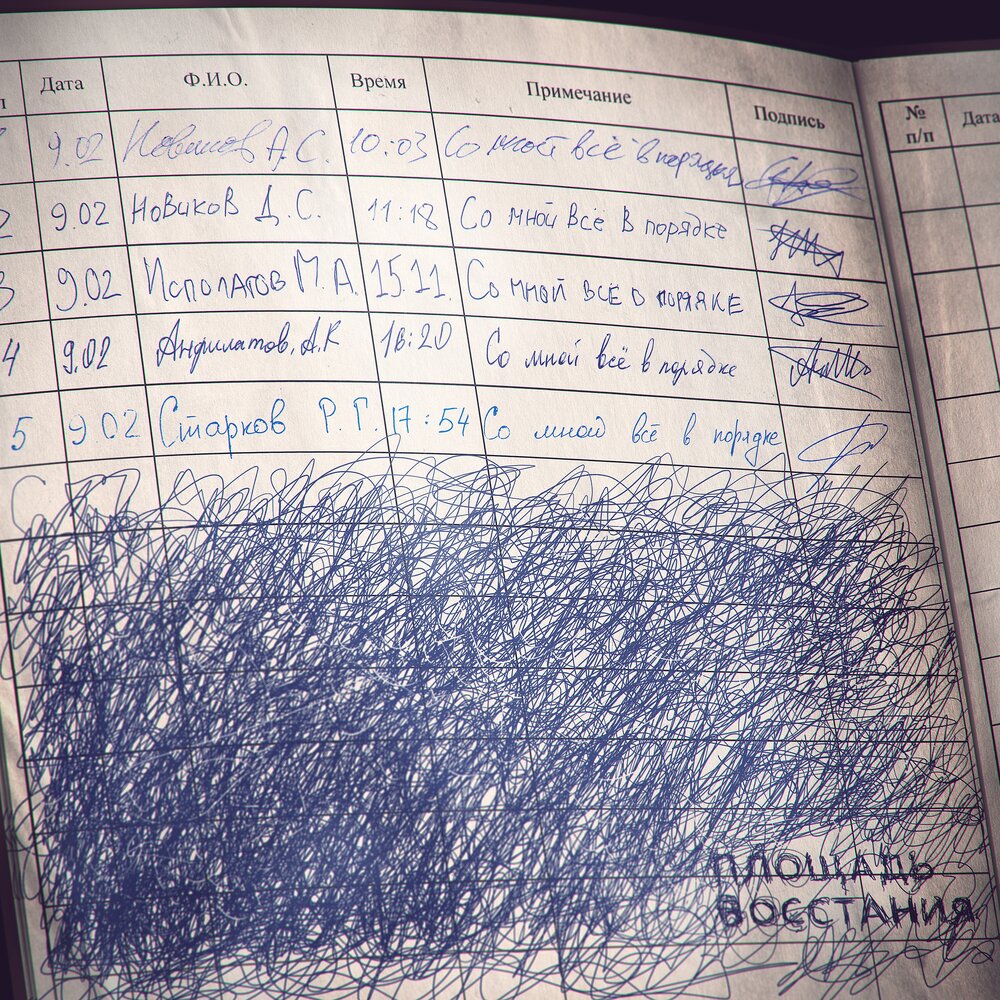 п Дата Ф.И.О. Время Примечание Подпись
9.02 Новиков А.С. 10:03 Со мной всё в порядке
2 9.02 Новиков Д.С. 11:18 Со мной всё в порядке
3 9.02 Исполатов М.А. 15.11. Со мной всё в порядке
4 9.02 Анфилатов. А.К 16:20 Со мной всё в порядке
5 9 02 Старков Р.Г. 17:54 Со мной всё в порядке
ПЛОЩАДЬ
ВОССТАНИЯ
№ п/п Дата